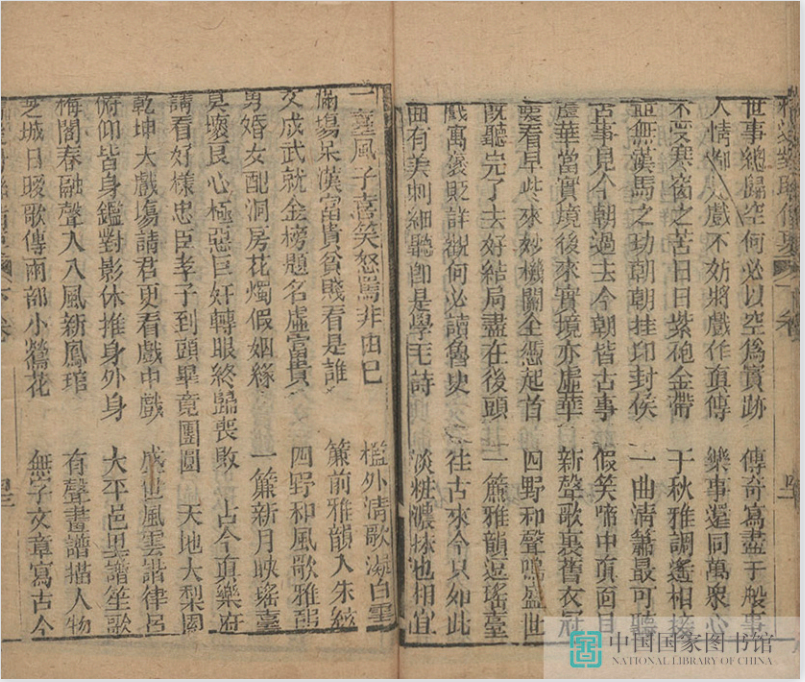 世事總歸空何必以空爲實跡　傳奇寫盡千般事
人情大戲不妨將戲作真傳　樂事還同萬衆心
不受寒窗之苦日日紫袍金帶　千秋雅調遙相接
並無漢馬之功朝朝挂印封侯　一曲清簫最可聽
古事見今朝過去今朝皆古事　假笑啼中真面目
虛華當實境後來實境亦虛華　新聲歌裏舊衣冠
要看早些來妙機關全憑起首　四野和聲鳴盛世
既聽完了去好結局盡在後頭　一簾雅韻逗瑤臺
戲寓褒貶詳觀何必讀魯史　往古來今只如此
曲有美刺細聽卽是學毛詩　淡粧濃抹也相宜
一臺風子喜笑怒罵非由己　檻外清歌凝白雪
滿場呆漢富貴貧賤看是誰　簾前雅韻入朱絃
文成武就金榜題名虛富貴　四野和風歌雅頌
男婚女配洞房花燭假姻緣　一簾新月映瑤臺
莫壞良心極惡巨奸轉眼終歸喪敗　古今真樂府
請看好樣忠臣孝子到頭畢竟團圓　天地大梨園
乾坤大戲場請君更看戲中戲　盛世風雲諧律呂
俯仰皆身鑑對影休推身外身　大平邑里譜笙歌
梅閣春融聲入八風新鳳琯　有聲畫譜描人物
芝城日暖歌傳兩部小鶯花　無字文章寫古今
中国国家图书馆
NATIONAL LIBRARY OF CHINA